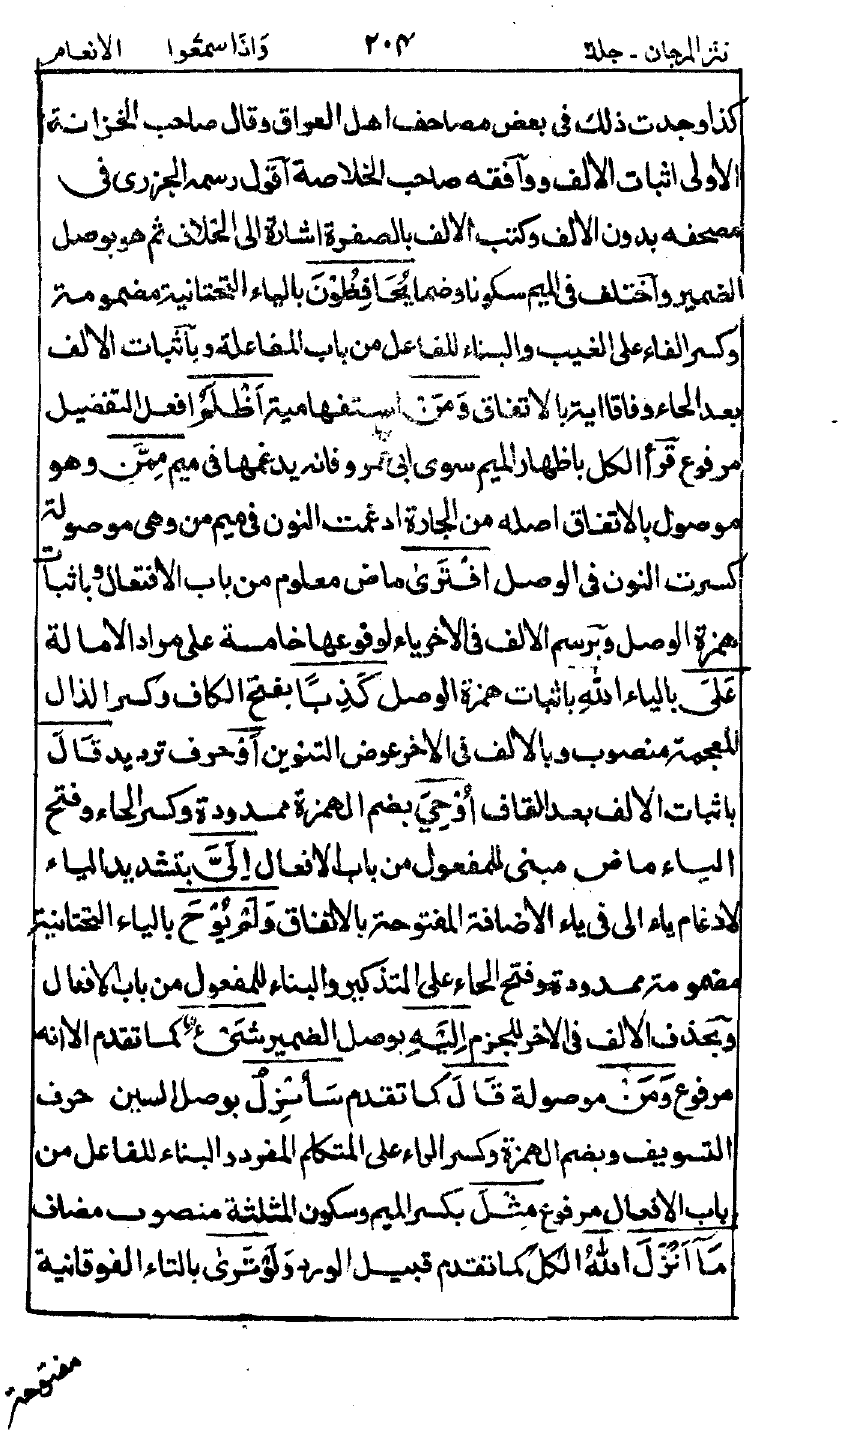 نثر المرجان - جلد ٢٠٤ وَاذَا سمعُوا الانعام
كذا وجدت ذلك فى بعض مصاحف اهل العراق وقال صاحب الخزانة
الاولى اثبات الالف ووآفقه صاحب الخلاصة آقول رسمه الجزرى فى
مصحفه بدون الالف وكتب الالف بالصفرة اشارة الى الخلاف ثم هو بوصل
الضمير وآختلف فى الميم سكونا وضما يُحَافِظُوْنَ بالياء التحتانية مضمومة
وكسر الفاء على الغيب والبناء للفاعل من باب المفاعلة وبآثبات الالف
بعد الحاء وفاقا اية بالاتفاق وَمَنْ استفهامية اَظْلَمُ افعل التفضيل
مرفوع قرأ الكل باظهار الميم سوى ابى عمرو فانه يدغمها فى ميم مِمَّن وهو
موصول بالاتفاق اصله من الجارة ادغمت النون فى ميم من وهى موصولة
كسرت النون فى الوصل افْتَرَىٰ ماض معلوم من باب الافتعال وباثبات
همزة الوصل وبَرسم الالف فى الاخر ياء لوقوعها خامسة على مراد الامالة
عَلَى بالياء اللهِ باثبات همزة الوصل كَذِبًا بفتح الكاف وكسر الذال
المعجمة منصوب وبالالف فى الاخر عوض التنوين اَوْ حرف ترديد قَالَ
باثبات الالف بعد القاف اُوْحِيَ بضم الهمزة ممدودة وكسر الحاء وفتح
الياء ماض مبنى للمفعول من باب الافعال اِلَيَّ بتشديد الياء
لادغام ياء الى فى ياء الاضافة المفتوحة بالاتفاق وَلَمْ يُوْحَ بالياء التحتانية
مضمومة ممدودة وفتح الحاء على التذكير والبناء للمفعول من باب الافعال
وبحذف الالف فى الاخر للجزم اِلَيْهِ بوصل الضمير شَىْءٌ كما تقدم الا انه
مرفوع وَمَنْ موصولة قَالَ كما تقدم سَأُنْزِلُ بوصل السين حرف
التسويف وبضم الهمزة وكسر الزاء على المتكلم المفرد والبناء للفاعل من
باب الافعال مرفوع مِثْلَ بكسر الميم وسكون المثلثة منصوب مضاف
مَا اَنْزَلَ اللهُ الكل كما تقدم قبيل الورد وَلَوْ تَرَىٰ بالتاء الفوقانية
مفتوحة